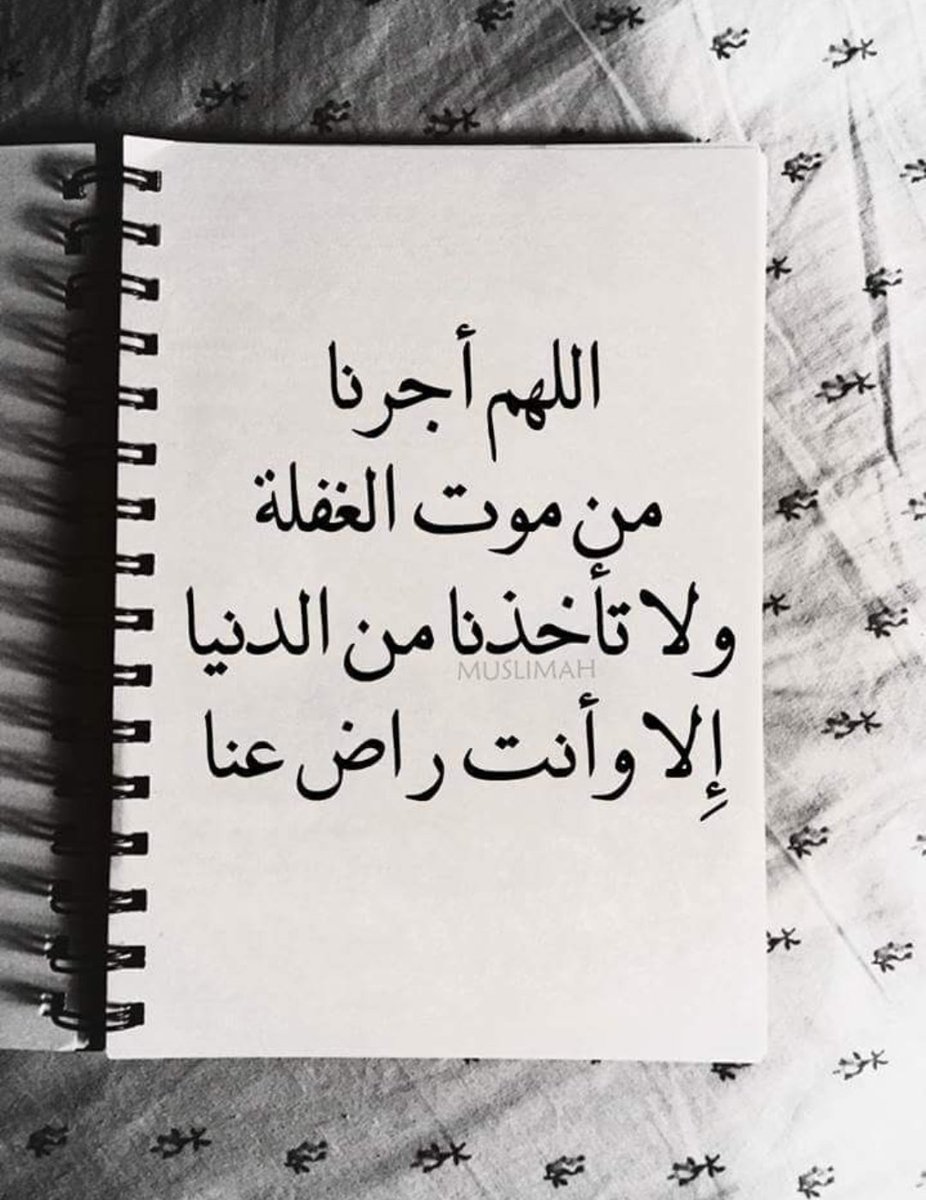 اللهم أجرنا
من موت الغفلة
ولا تأخذنا من الدنيا
MUSLIMAH
إِلا وأنت راض عنا